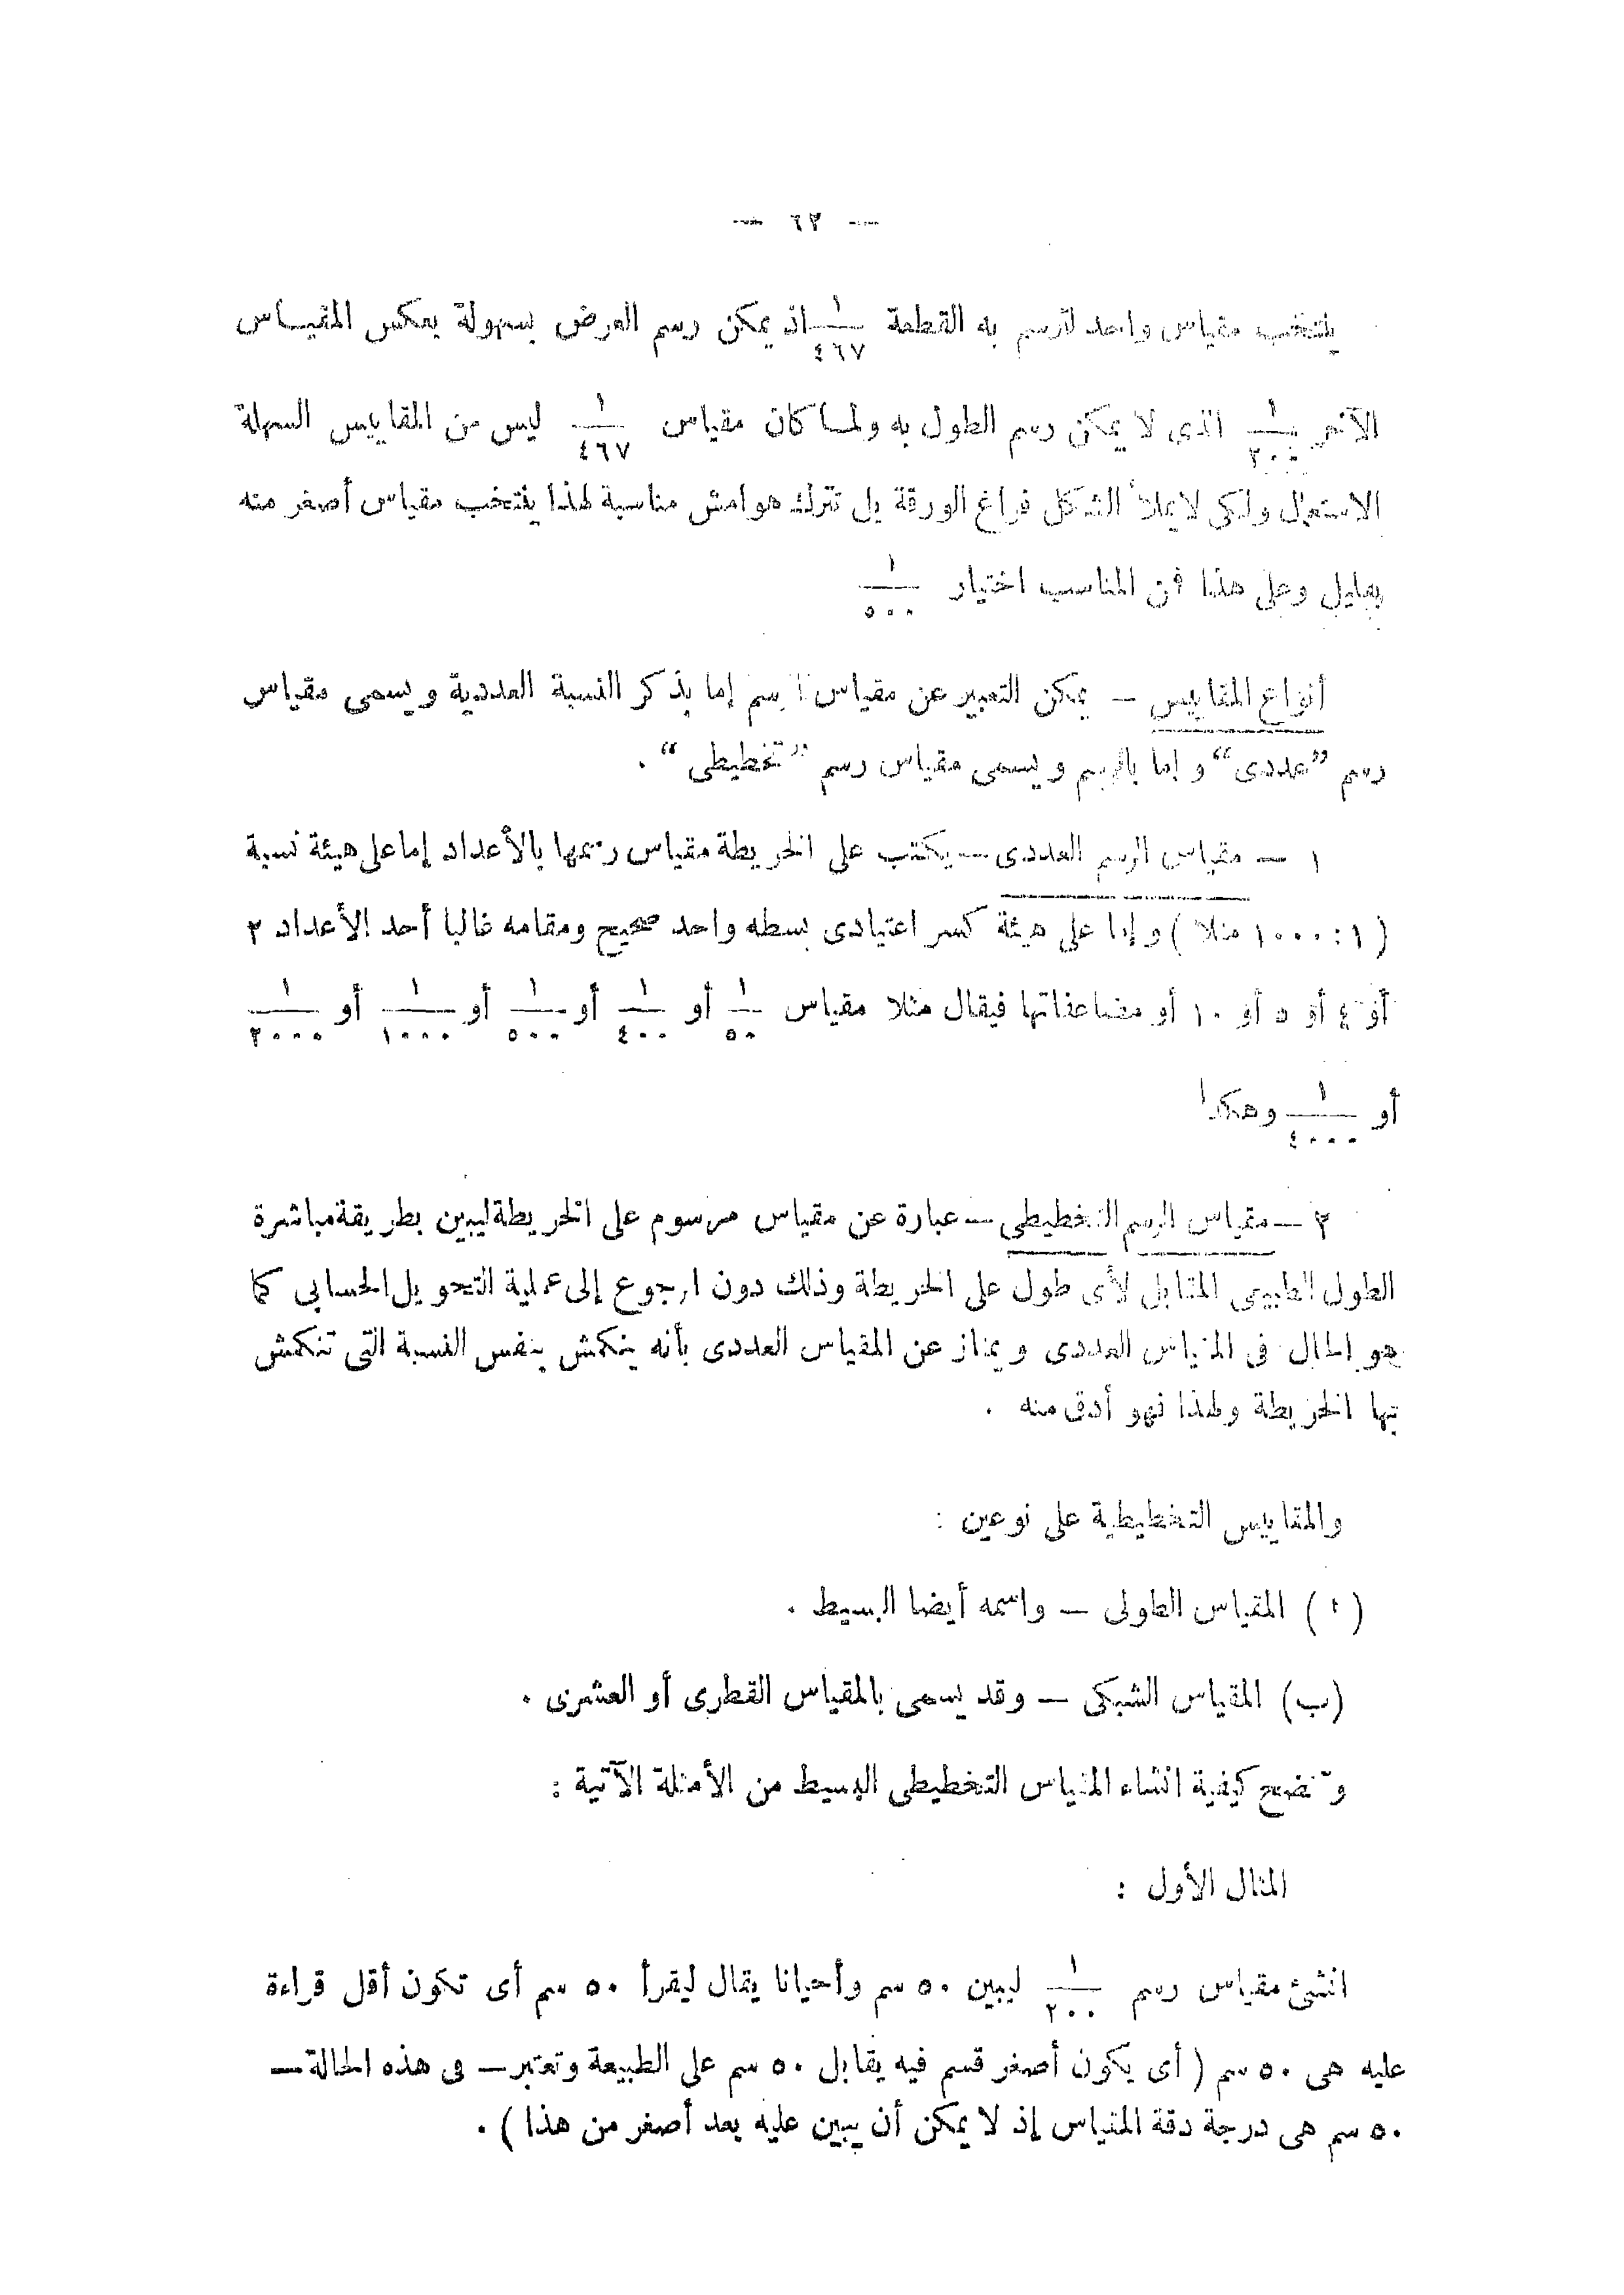 — ٦٣ —
ينتخب مقياس واحد لترسم به القطعة ١/٤٦٧ اذ يمكن رسم العرض بسهولة بعكس المقياس
الآخر ١/٢٠٠ الذى لا يمكن رسم الطول به ولما كان مقياس ١/٤٦٧ ليس من المقاييس السهلة
الاستعمال ولكى لا يملأ الشكل فراغ الورقة بل تترك هوامش مناسبة لهذا ينتخب مقياس أصغر منه
بقليل وعلى هذا فمن المناسب اختيار ١/٥٠٠
أنواع المقاييس — يمكن التعبير عن مقياس الرسم إما بذكر النسبة العددية ويسمى مقياس
رسم ”عددى“ وإما بالرسم ويسمى مقياس رسم ”تخطيطى“ .
١ — مقياس الرسم العددى — يكتب على الخريطة مقياس رسمها بالأعداد إما على هيئة نسبة
( ١ : ١٠٠٠ مثلا ) وإما على هيئة كسر اعتيادى بسطه واحد صحيح ومقامه غالبا أحد الأعداد ٢
أو ٤ أو ٥ أو ١٠ أو مضاعفاتها فيقال مثلا مقياس ١/٥٠ أو ١/٤٠٠ أو ١/٥٠٠ أو ١/١٠٠٠ أو ١/٢٠٠٠
أو ١/٤٠٠٠ وهكذا
٢ — مقياس الرسم التخطيطى — عبارة عن مقياس مرسوم على الخريطة ليبين بطريقة مباشرة
الطول الطبيعى المقابل لأى طول على الخريطة وذلك دون الرجوع إلى عملية التحويل الحسابى كما
هو الحال فى المقياس العددى ويمتاز عن المقياس العددى بأنه ينكمش بنفس النسبة التى تنكمش
بها الخريطة ولهذا فهو أدق منه .
والمقاييس التخطيطية على نوعين :
( ا ) المقياس الطولى — واسمه أيضا البسيط .
(ب) المقياس الشبكى — وقد يسمى بالمقياس القطرى أو العشرى .
وتتضح كيفية انشاء المقياس التخطيطى البسيط من الأمثلة الآتية :
المثال الأول :
انشئ مقياس رسم ١/٢٠٠ ليبين ٥٠ سم وأحيانا يقال ليقرأ ٥٠ سم أى تكون أقل قراءة
عليه هى ٥٠ سم ( أى يكون أصغر قسم فيه يقابل ٥٠ سم على الطبيعة وتعتبر — فى هذه الحالة —
٥٠ سم هى درجة دقة المقياس إذ لا يمكن أن يبين عليه بعد أصغر من هذا ) .